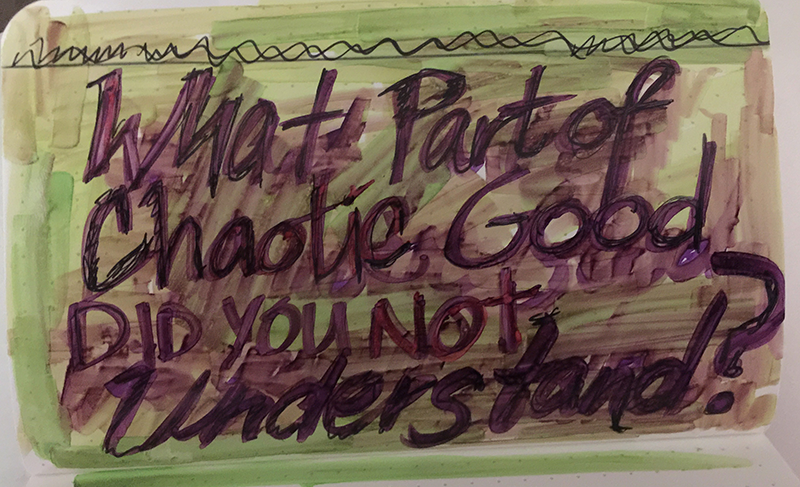 What Part of
Chaotic Good
DID YOU NOt
Understand?